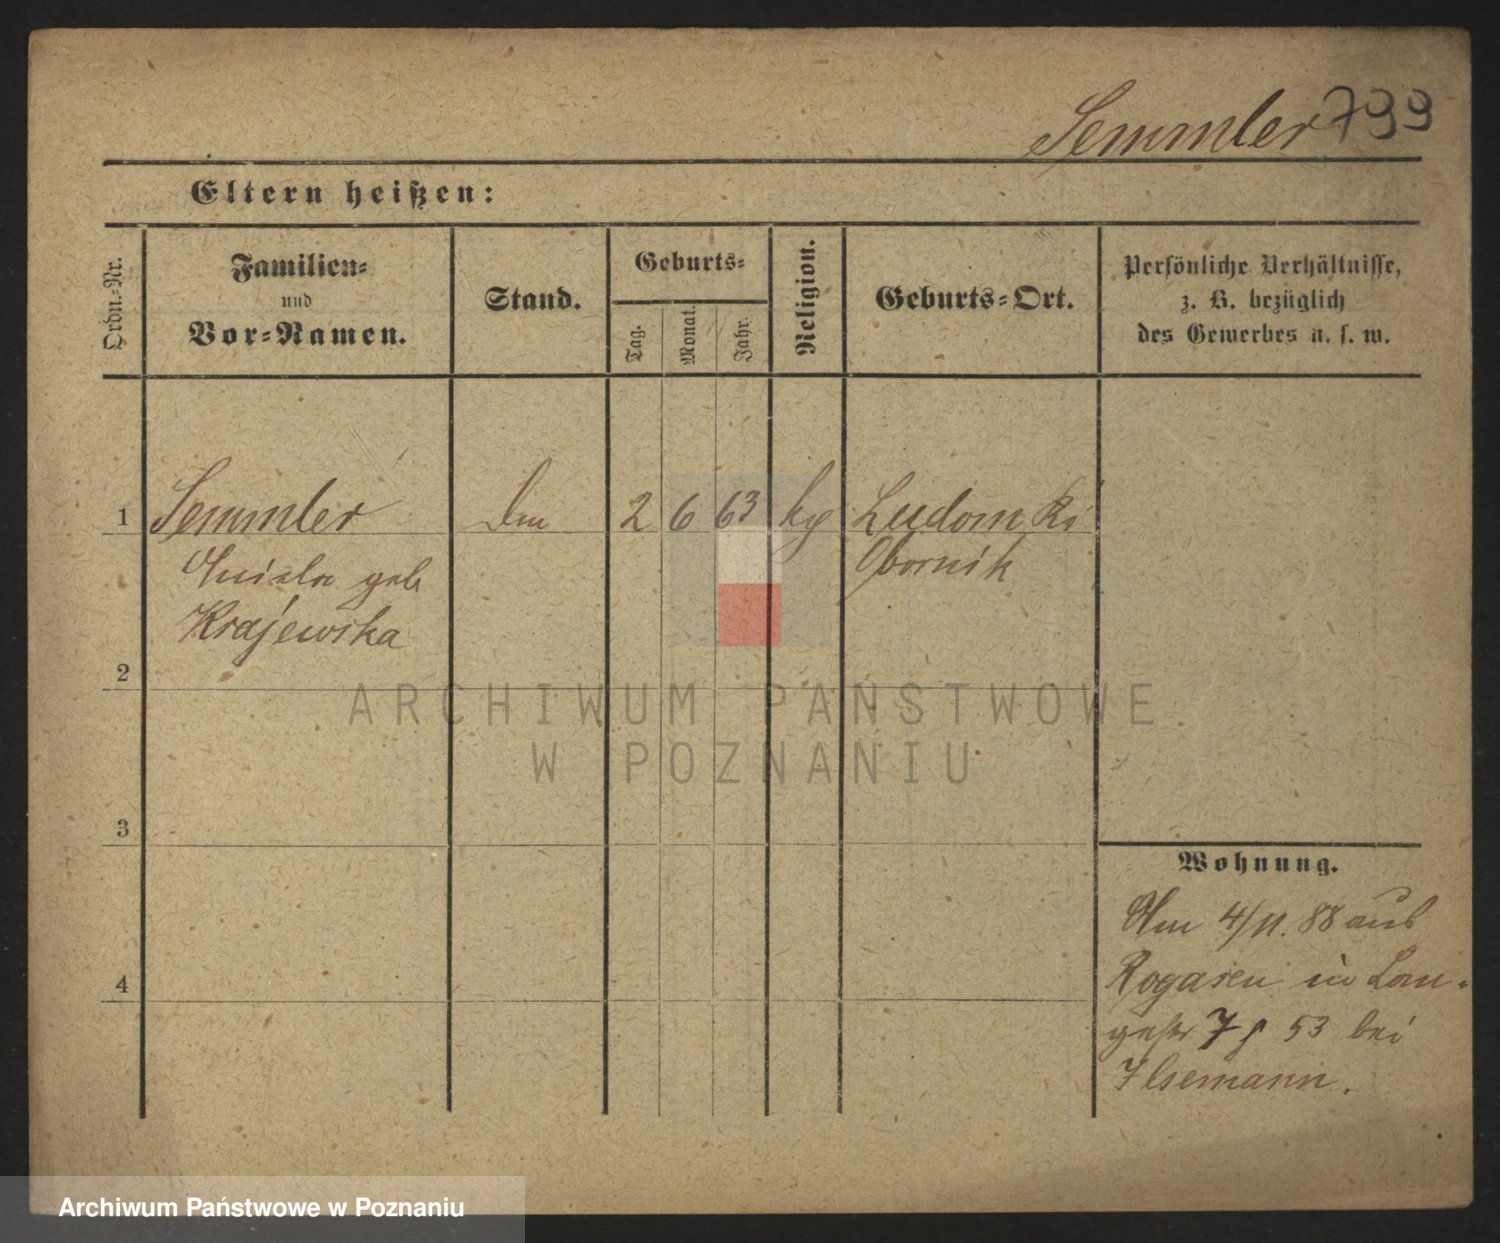 Semmler 799
Eltern heißen:
Ordn.-Nr.
Familien-
und
Vor-Namen.
Stand.
Geburts-
Tag.
Monat.
Jahr.
Religion.
Geburts-Ort.
Persönliche Verhältnisse,
z. B. bezüglich
des Gewerbes u. s. w.
1 Semmler 2 6 63 Ludomki
Aniela geb Obornik
Krajewska
2
3
4
Wohnung.
Am 4/11. 88 aus
Rogasen in Lan-
gestr 7 53 bei
Ilsemann.
ARCHIWUM PAŃSTWOWE
W POZNANIU
Archiwum Państwowe w Poznaniu